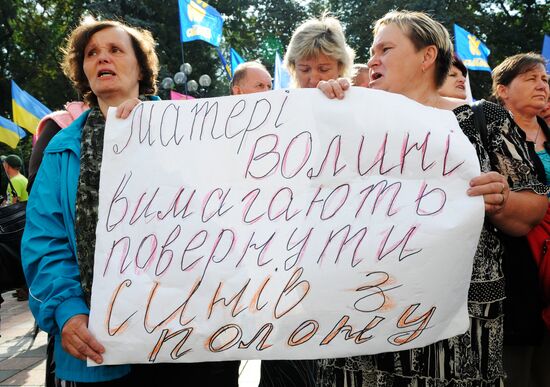 Матері
Волині
вимагають
повернути
синів з
полону